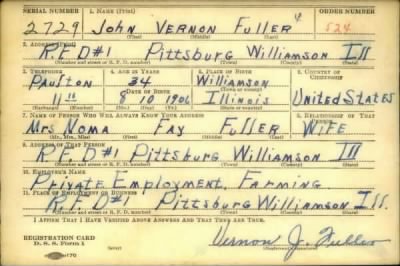 SERIAL NUMBER 1. NAME (Print) ORDER NUMBER
2729 John Vernon Fuller 524
(First) (Middle) (Last)
2. ADDRESS (Print)
R.F.D#1 Pittsburg Williamson Ill
(Number and street or R. F. D. number) (Town) (County) (State)
3. TELEPHONE 4. AGE IN YEARS 5. PLACE OF BIRTH 6. COUNTRY OF CITIZENSHIP
Paulton 34 Williamson
(Town or county)
DATE OF BIRTH
9 10 1906 Illinois United States
(Exchange) (Number) (Mo.) (Day) (Yr.) (State or country)
7. NAME OF PERSON WHO WILL ALWAYS KNOW YOUR ADDRESS 8. RELATIONSHIP OF THAT PERSON
Mrs Noma Fay Fuller Wife
(Mr., Mrs., Miss) (First) (Middle) (Last)
9. ADDRESS OF THAT PERSON
R.F.D#1 Pittsburg Williamson Ill
(Number and street or R. F. D. number) (Town) (County) (State)
10. EMPLOYER'S NAME
Private Employment, Farming
11. PLACE OF EMPLOYMENT OR BUSINESS
R.F.D#1 Pittsburg Williamson Ill.
(Number and street or R. F. D. number) (Town) (County) (State)
I AFFIRM THAT I HAVE VERIFIED ABOVE ANSWERS AND THAT THEY ARE TRUE.
REGISTRATION CARD
D. S. S. Form 1 Vernon J. Fuller
(Registrant's signature)